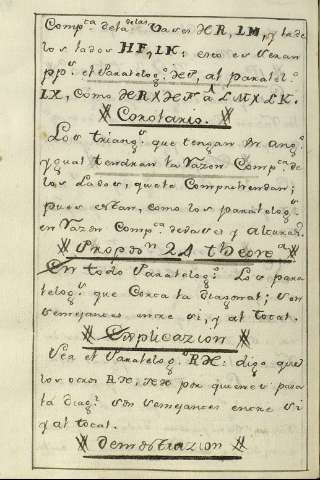 Comp.ta de la de las Vases HR, LM, y la de
los lados HF, LK: esto es seran
pps. el Paralelog.º HF, al paralel.º
LX, como HRXHF à LMXLK.
Corolario.
Los triang.s que tengan un ang.º
ygual tendran la Razon Comp.ta de
los Lados, que le Comprehendan;
pues estan, como los paralelog.s
en Razon Comp.ta de vases y alturas.
Propos.n 24 theore.a
En todo Paralelog.º Los para
lelog.s que Corta la diagonal; son
semejantes entre si, y al total.
Explicazion
Sea el Paralelog.º RX: digo que
los otros por quienes pasa
la diag.l son semejantes entre si
y al total.
Demostrazion